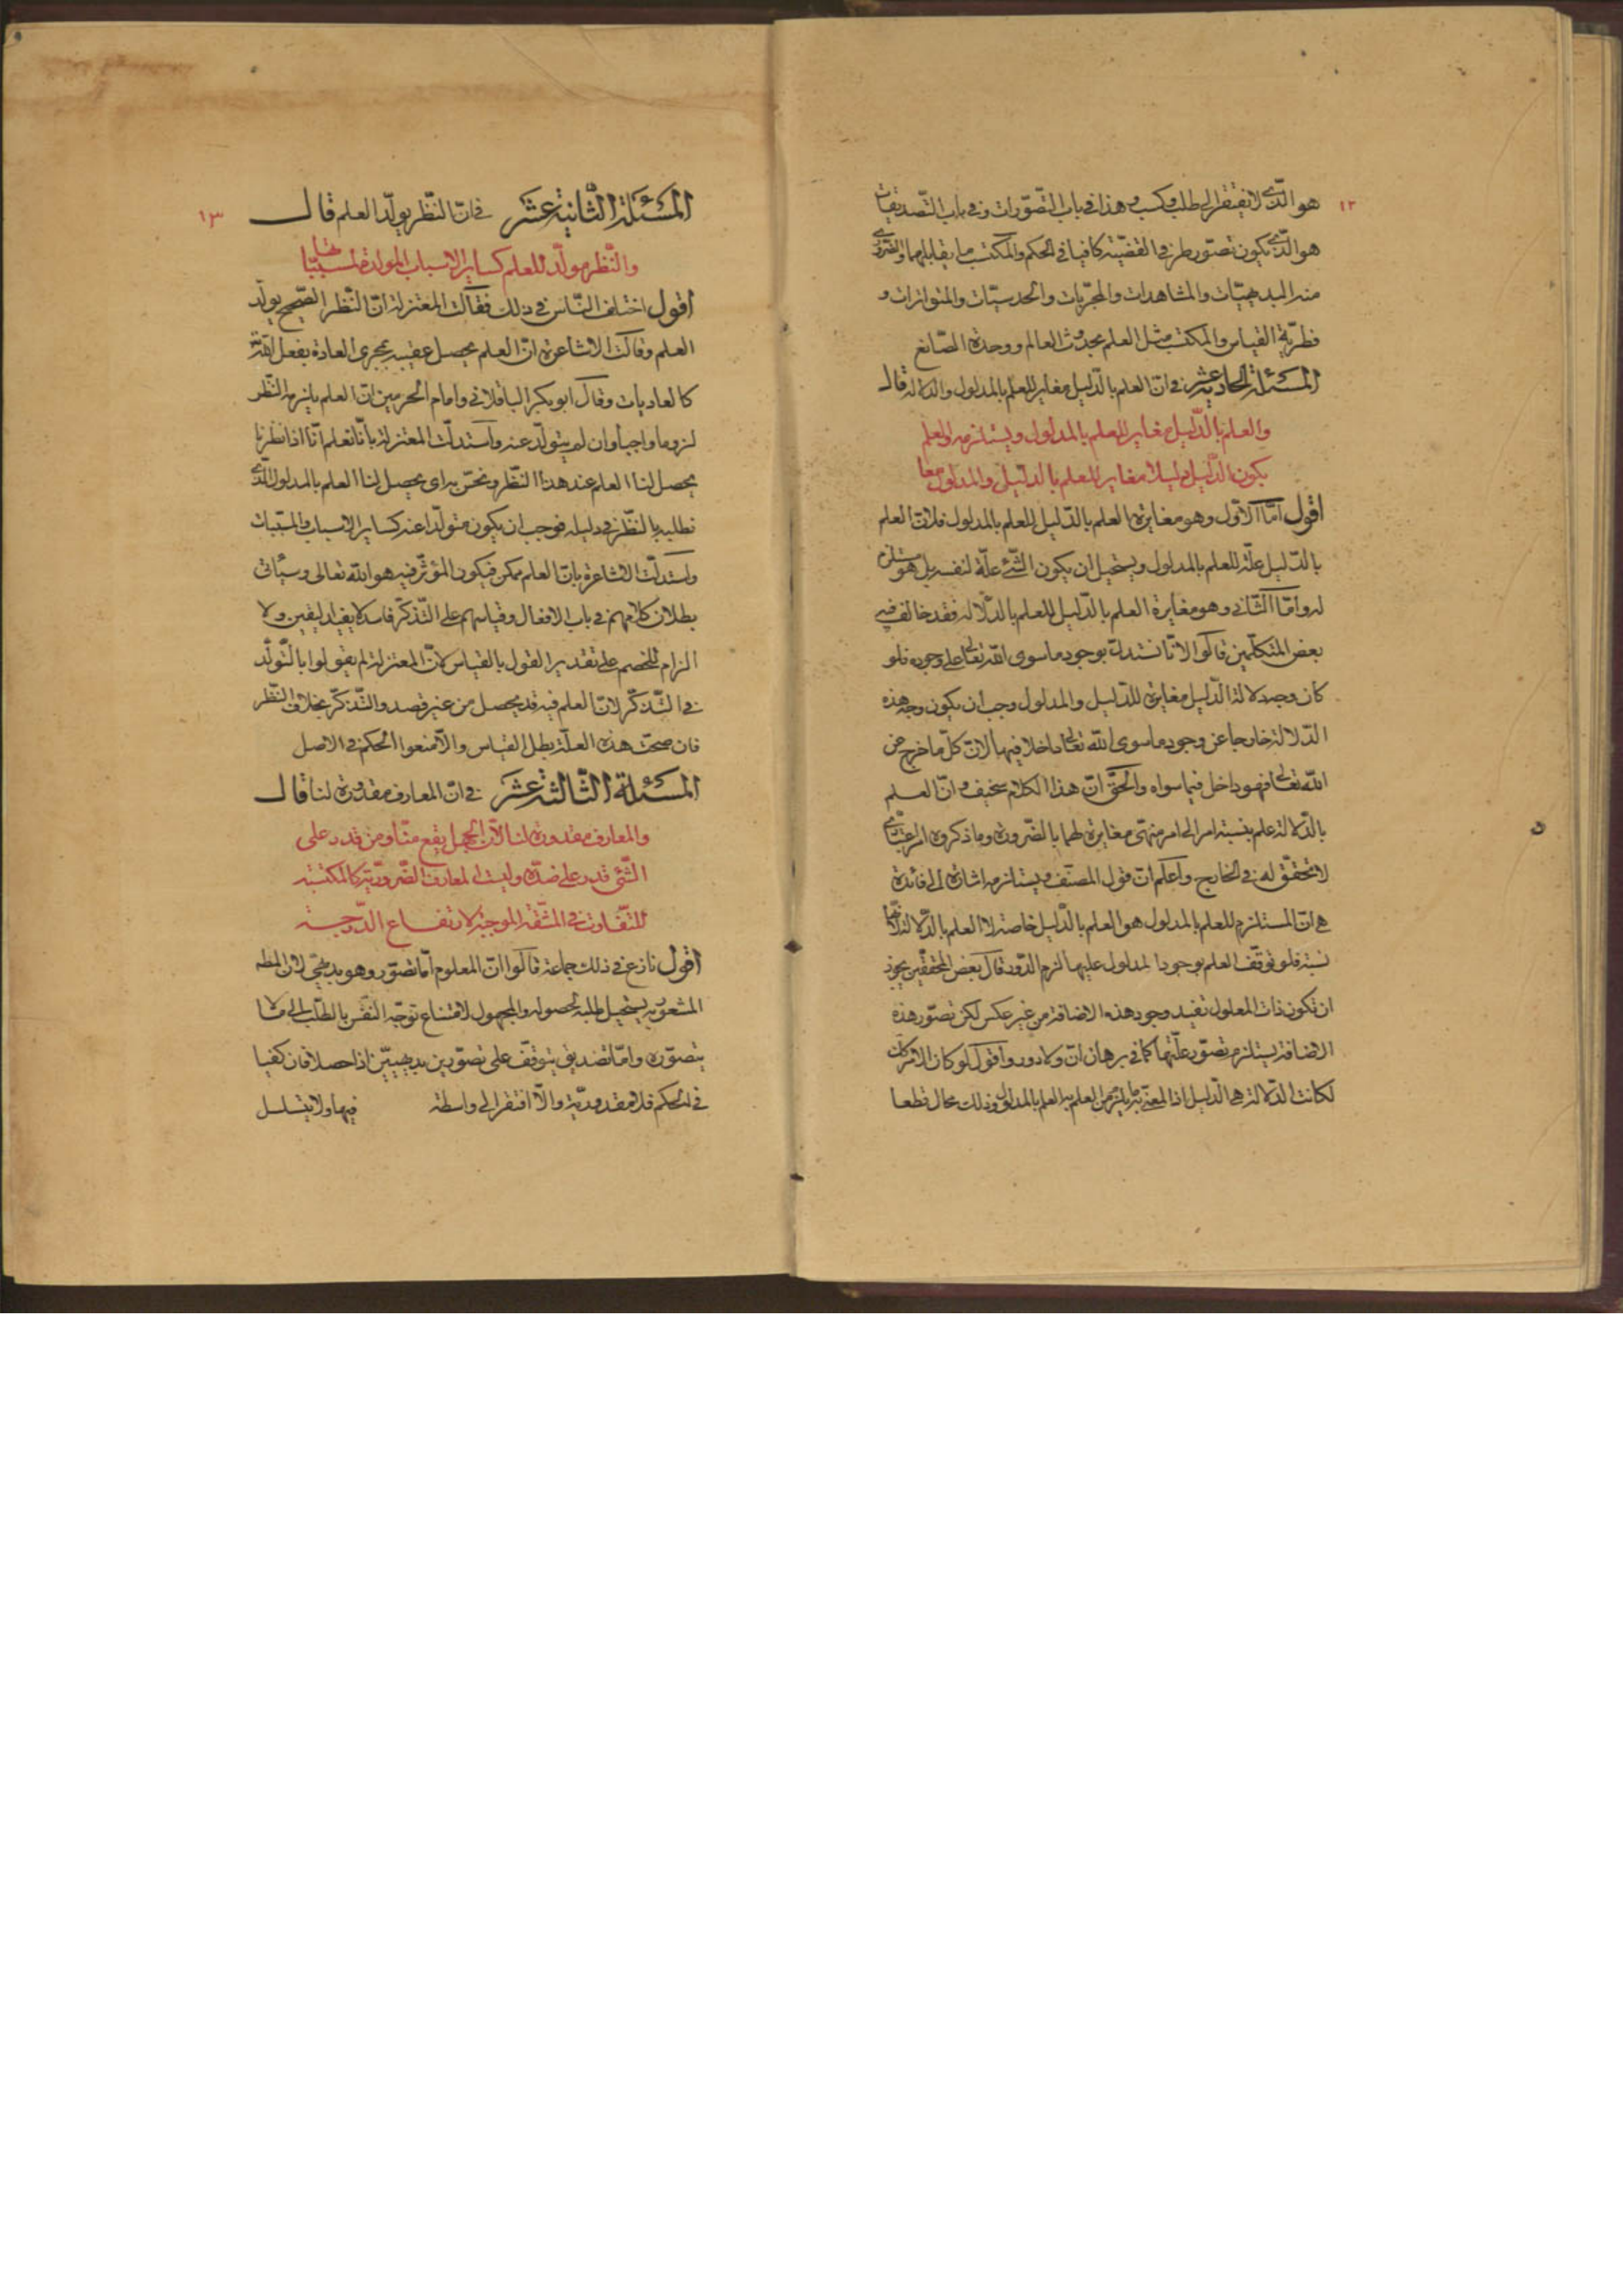 ١٢
هو الّذي لا يفتقر الى طلب وكسب وهذا في باب التّصوّرات وفي باب التّصديقات
هو الّذي يكون تصوّر طرفي القضيّة كافيا في الحكم والمكتسب ما يقابلهما والضّروري
منه البديهيّات والمشاهدات والمجرّبات والحدسيّات والمتواترات و
فطريّة القياس والمكتسب مثل العلم بحدوث العالم ووحدة الصّانع
المسئلة الحادية عشر في انّ العلم بالدّليل مغاير للعلم بالمدلول والدلالة قال
والعلم بالدّليل مغاير للعلم بالمدلول ويستلزمه والعلم
بكون الدّليل دليلا مغاير للعلم بالدّليل والمدلول معا
اقول امّا الاوّل وهو مغايرة العلم بالدّليل للعلم بالمدلول فلانّ العلم
بالدّليل علّة للعلم بالمدلول ويستحيل ان يكون الشّئ علّة لنفسه بل هو مستلزم
له وامّا الثّاني وهو مغايرة العلم بالدّليل للعلم بالدّلالة فقد خالف فيه
بعض المتكلّمين قالوا لانّا نستدلّ بوجود ما سوى اللّه تعالى على وجوده فلو
كان وجه دلالة الدّليل مغايرة للدّليل والمدلول وجب ان يكون وجه هذه
الدّلالة خارجا عن وجود ما سوى اللّه تعالى داخلا فيها لانّ كلّ ما خرج عن
اللّه تعالى فهو داخل فيما سواه والحقّ انّ هذا الكلام سخيف وانّ العلم
بالدّلالة علم بنسبة امر الى امر فهى مغايرة لهما بالضّرورة وما ذكروه امر اعتباري
لا تحقّق له في الخارج واعلم انّ قول المصنّف ويستلزمه اشارة الى فائدة
هى انّ المستلزم للعلم بالمدلول هو العلم بالدّليل خاصة لا العلم بالدّلالة لانّها
نسبة فلو توقّف العلم بوجود المدلول عليها لزم الدّور قال بعض المحقّقين يجوز
ان تكون ذات المعلول تفيد وجود هذه الاضافة من غير عكس لكن تصوّر هذه
الاضافة يستلزم تصوّر علّتها كما في برهان انّ ولا دور واقول لو كان الامر كك
لكانت الدّلالة هى الدّليل اذ المعنى به ما يلزم من العلم به العلم بالمدلول وذلك محال قطعا
١٣
المسئلة الثّانية عشر في انّ النّظر يولّد العلم قال
والنّظر مولّد للعلم كساير الاسباب المولدة لمسبّباتها
اقول اختلف النّاس في ذلك فقالت المعتزلة انّ النّظر الصّحيح يولّد
العلم وقالت الاشاعرة انّ العلم يحصل عقيبه بمجرى العادة بفعل اللّه
كالعاديات وقال ابو بكر الباقلاني وامام الحرمين انّ العلم يلزمه النّظر
لزوما واجبا وان لم يتولّد عنه واستدلّت المعتزلة بأنّا نعلم انّا اذا نظرنا
يحصل لنا العلم عند هذا النّظر وبحسبه اى يحصل لنا العلم بالمدلول الّذي
نطلبه بالنّظر في دليله فوجب ان يكون متولّدا عنه كساير الاسباب والمسبّبات
واستدلّت الاشاعرة بانّ العلم ممكن فيكون المؤثّر فيه هو اللّه تعالى وسيأتي
بطلان كلامهم في باب الافعال وقياسهم على التّذكّر فاسد لا يفيد اليقين ولا
الزام للخصم على تقدير القول بالقياس لانّ المعتزلة لم يقولوا بالتّولّد
في التّذكّر لانّ العلم فيه قد يحصل من غير قصد والتّذكّر بخلاف النّظر
فان صحّت هذه العلّة بطل القياس والاّ منعوا الحكم في الاصل
المسئلة الثّالثة عشر في انّ المعارف مقدورة لنا قال
والمعارف مقدورة لنا لانّ الجهل يقع منّا ومن قدر على
الشّئ قدر على ضدّه وليست المعارف الضّروريّة كالمكتسبة
للتّفاوت في المشّقة الموجبة لارتفاع الدّرجة
اقول نازع في ذلك جماعة قالوا انّ المعلوم امّا تصوّر وهو بديهيّ لانّ المطه
المشعور به يستحيل طلبه لحصوله والمجهول لامتناع توجّه النّفس بالطّلب الى ما لا
يتصوّره وامّا تصديق يتوقّف على تصوّرين بديهيّين اذا حصلا فان كفيا
في الحكم فلا مقدوريّة والاّ افتقر الى واسطة فيها ولا يتسلسل